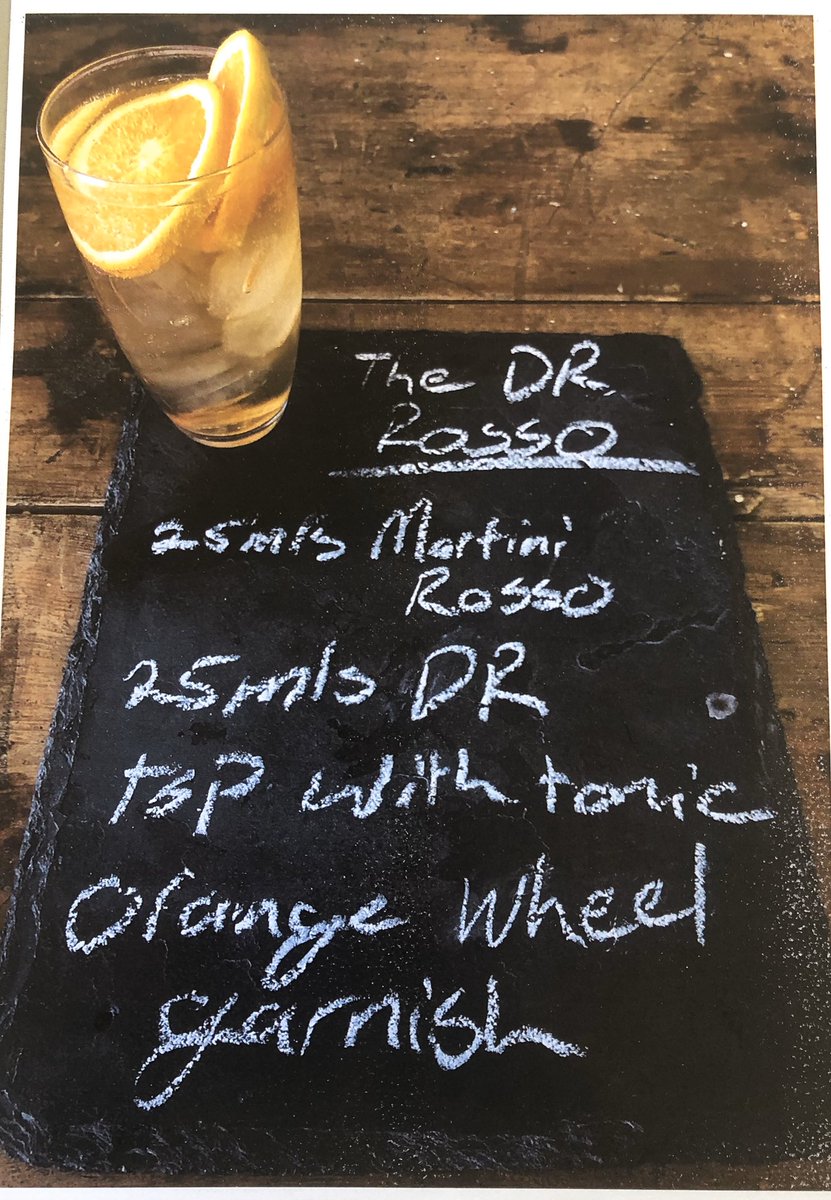 The DR
Rosso
25mls Martini
Rosso
25mls DR
top with tonic
Orange Wheel
garnish